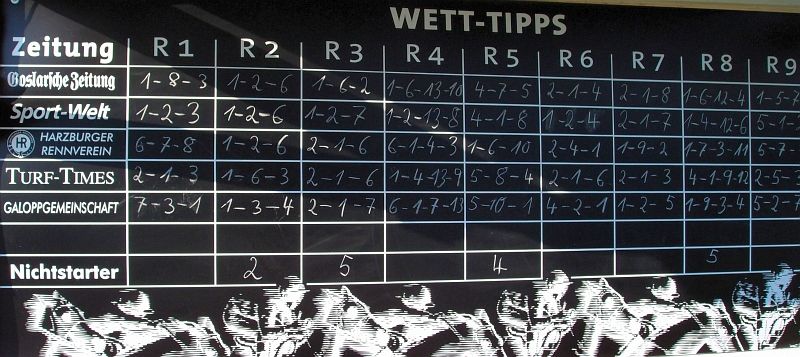 WETT-TIPPS
Zeitung R 1 R 2 R 3 R 4 R 5 R 6 R 7 R 8 R 9
Goslarsche Zeitung 1-8-3 1-2-6 1-6-2 1-6-13-10 4-7-5 2-1-4 2-1-8 1-6-12-4 1-5-7
Sport-Welt 1-2-3 1-2-6 1-2-7 1-2-13-8 4-1-8 1-2-4 2-1-7 1-4-12-6 5-1-
HR HARZBURGER RENNVEREIN 6-7-8 1-2-6 2-1-6 6-1-4-3 1-6-10 2-4-1 1-9-2 1-7-3-11 5-7-
TURF-TIMES 2-1-3 1-6-3 2-1-6 1-4-13-9 5-8-4 2-1-6 2-1-3 4-1-9-12 2-5-3
GALOPPGEMEINSCHAFT 7-3-1 1-3-4 2-1-7 6-1-7-13 5-10-1 4-2-1 1-2-5 1-9-3-4 5-2-7
Nichtstarter 2 5 4 5